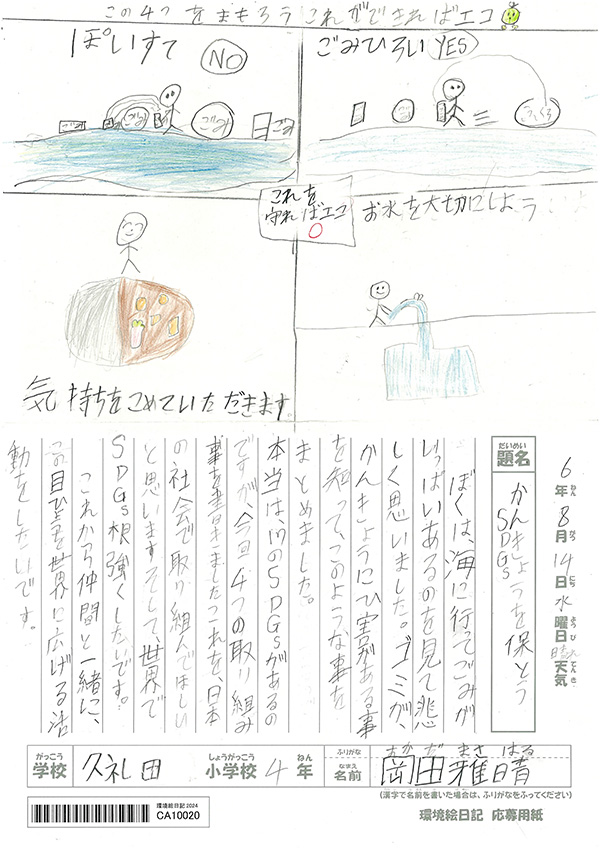 この4つをまもろうこれができればエコ
ぽいすて NO
ごみ
ごみ
ごみ
ごみ
ごみひろい YES
ふくろ
これを
守ればエコ
○
お水を大切にしよう
気持ちをこめていただきます。
6年8月14日水曜日晴れ天気
ねん がつ にち ようび てんき
だいめい
題名
かんきょうを保とう
SDGs
ぼくは、海に行ってごみが
いっぱいあるのを見て悲
しく思いました。ゴミが、
かんきょうにひ害がある事
を知って、このような事を
まとめました。
本当は、17のSDGsがあるの
ですが、今回4つの取り組み
事を書きましたこれを、日本
の社会で取り組んでほしい
と思いますそして、世界で
SDGs根強くしたいです。
これから仲間と一緒に、
この目ひょうを世界に広げる活
動をしたいです。
がっこう
学校
久礼田
しょうがっこう
小学校
4
ねん
年
ふりがな
おかだ まさはる
なまえ
名前
岡田雅晴
(漢字で名前を書いた場合は、ふりがなをふってください)
環境絵日記2024
CA10020
環境絵日記 応募用紙